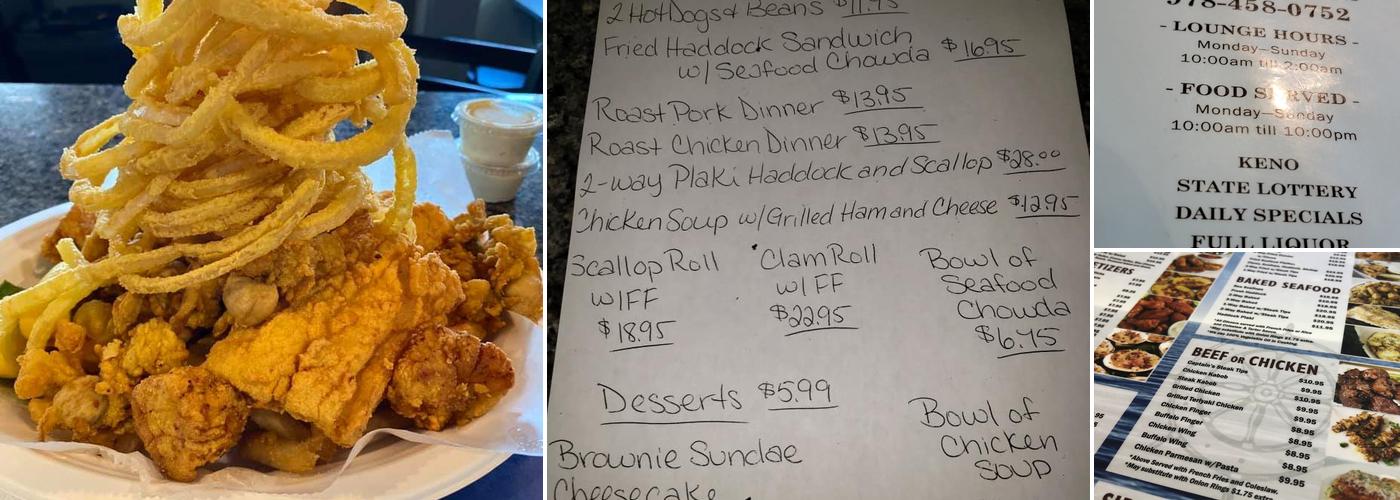 2 Hot Dogs & Beans $11.95
Fried Haddock Sandwich
w/ Seafood Chowda $16.95
Roast Pork Dinner $13.95
Roast Chicken Dinner $13.95
2-way Plaki Haddock and Scallop $28.00
Chicken Soup w/Grilled Ham and Cheese $12.95
Scallop Roll
w/FF
$18.95
Clam Roll
w/FF
$22.95
Bowl of
Seafood
Chowda
$6.75
Desserts $5.99
Brownie Sundae
Cheesecake
Bowl of
Chicken
Soup
978-458-0752
- LOUNGE HOURS -
Monday–Sunday
10:00am till 2:00am
- FOOD SERVED -
Monday–Sunday
10:00am till 10:00pm
KENO
STATE LOTTERY
DAILY SPECIALS
FULL LIQUOR
BAKED SEAFOOD
BEEF OR CHICKEN
Captain's Steak Tips $10.95
Chicken Kabob $9.95
Steak Kabob $10.95
Grilled Chicken $9.95
Grilled Teriyaki Chicken $9.95
Chicken Finger $8.95
Buffalo Finger $8.95
Chicken Wing $8.95
Buffalo Wing $8.95
Chicken Parmesan w/Pasta $9.95
*Above Served with French Fries and Coleslaw.
*May substitute with Onion Rings $1.75 extra.